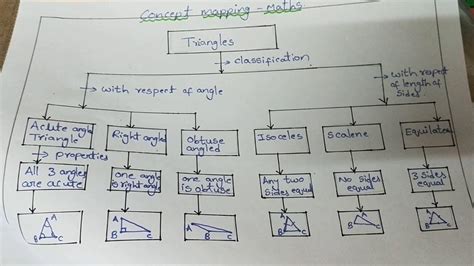 Concept mapping - Maths
Triangles
classification
with respect of angle
with repect
of length of
sides
Acute angle
Triangle
Right angled
Obtuse
angled
Isoceles
Scalene
Equilateral
properties
All 3 angles
are acute
one angle
is right angle
one angle
is obtuse
Any two
sides equal
No sides
equal
3 sides
equal
A
B C
A
B C
A
B C
A
B C
A
B C
A
B C